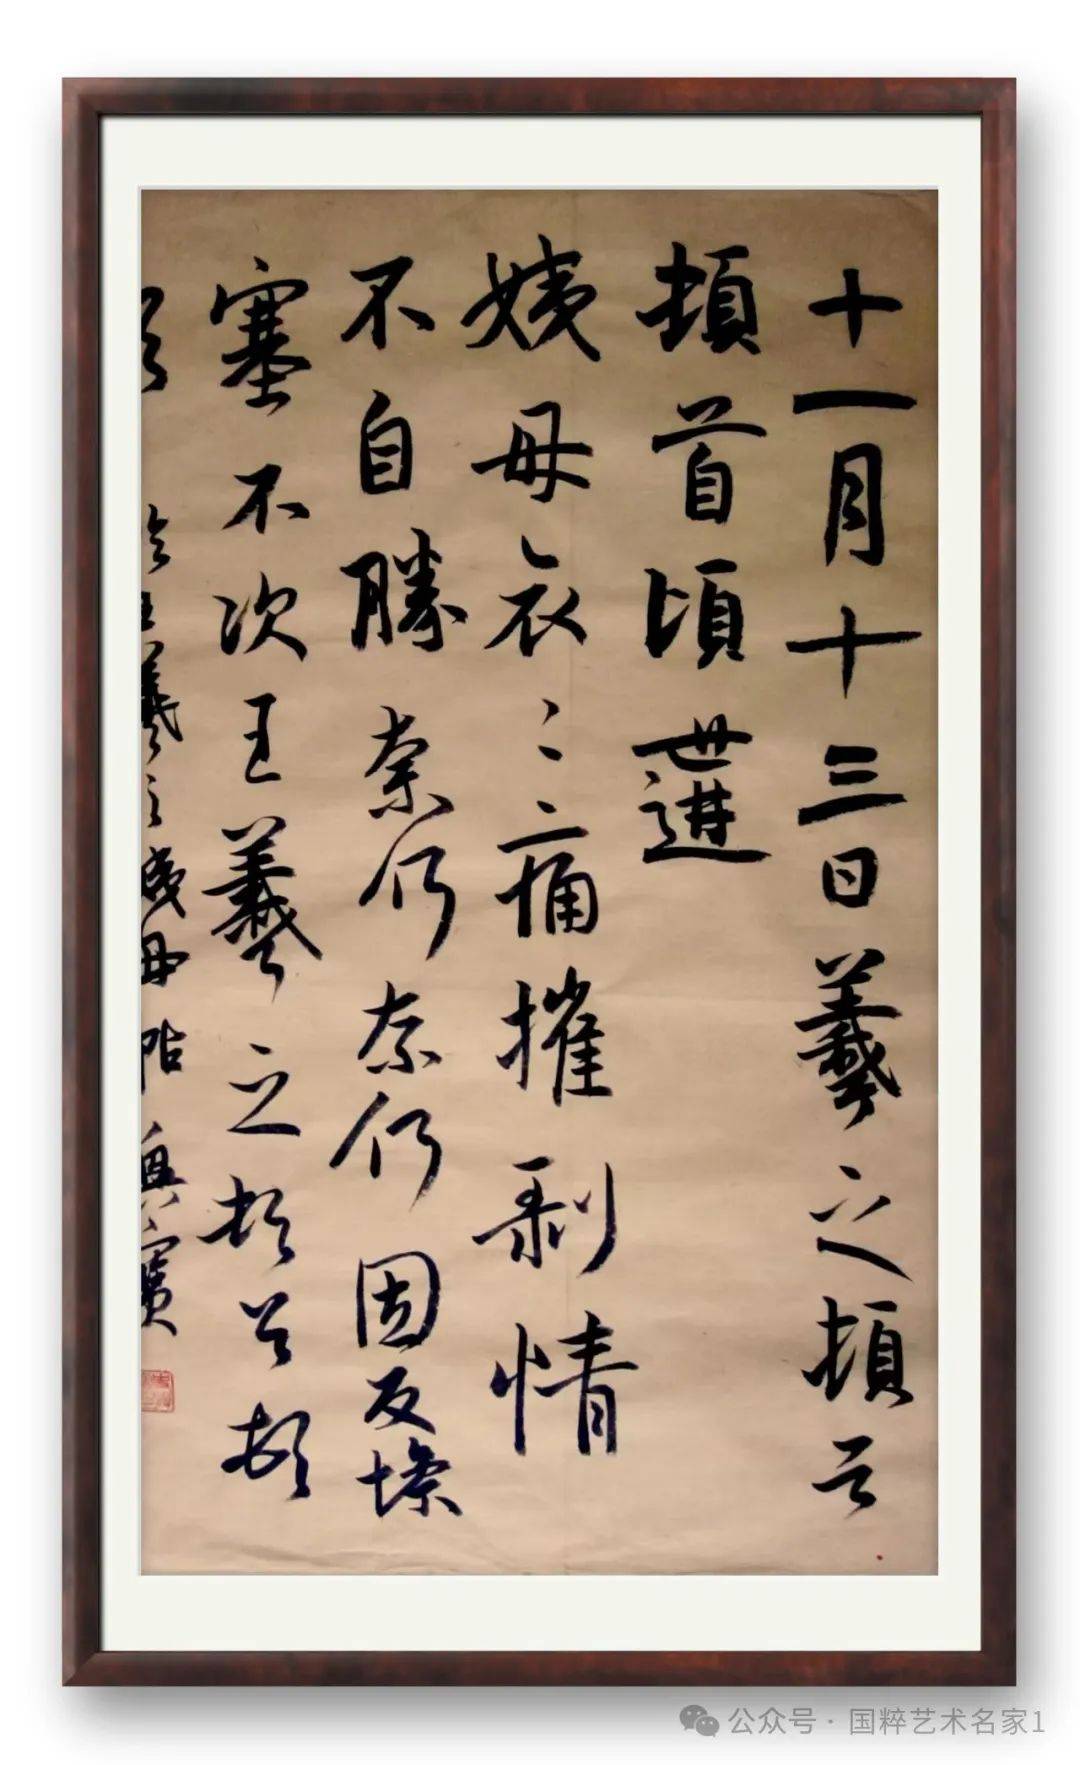 十一月十三日羲之頓首
頓首頃遘
姨母哀〻痛摧剥情
不自勝奈何奈何因反慘
塞不次王羲之頓首頓
首 臨王羲之姨母帖
公众号 · 国粹艺术名家1